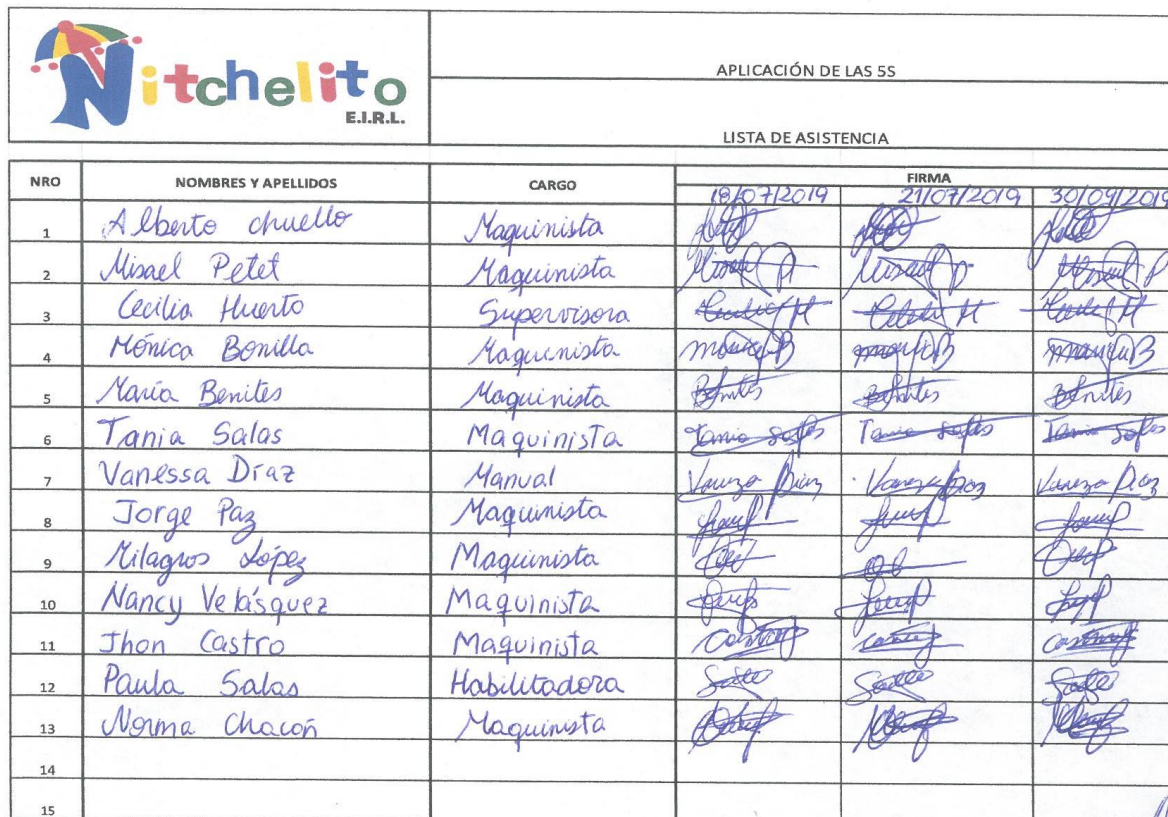 Nitchelito
E.I.R.L.
APLICACIÓN DE LAS 5S
LISTA DE ASISTENCIA
NRO NOMBRES Y APELLIDOS CARGO FIRMA
18/07/2019 21/07/2019 30/09/2019
1 Alberto chuello Maquinista
2 Misael Petet Maquinista Misael P Misael P Misael P
3 Cecilia Huerto Supervisora
4 Mónica Bonilla Maquinista
5 María Benites Maquinista Benites Benites Benites
6 Tania Salas Maquinista Tania Salas Tania Salas Tania Salas
7 Vanessa Díaz Manual Vaneza Diaz Vaneza Diaz Vaneza Diaz
8 Jorge Paz Maquinista
9 Milagros López Maquinista
10 Nancy Velásquez Maquinista
11 Jhon Castro Maquinista
12 Paula Salas Habilitadora
13 Norma Chacón Maquinista
14
15